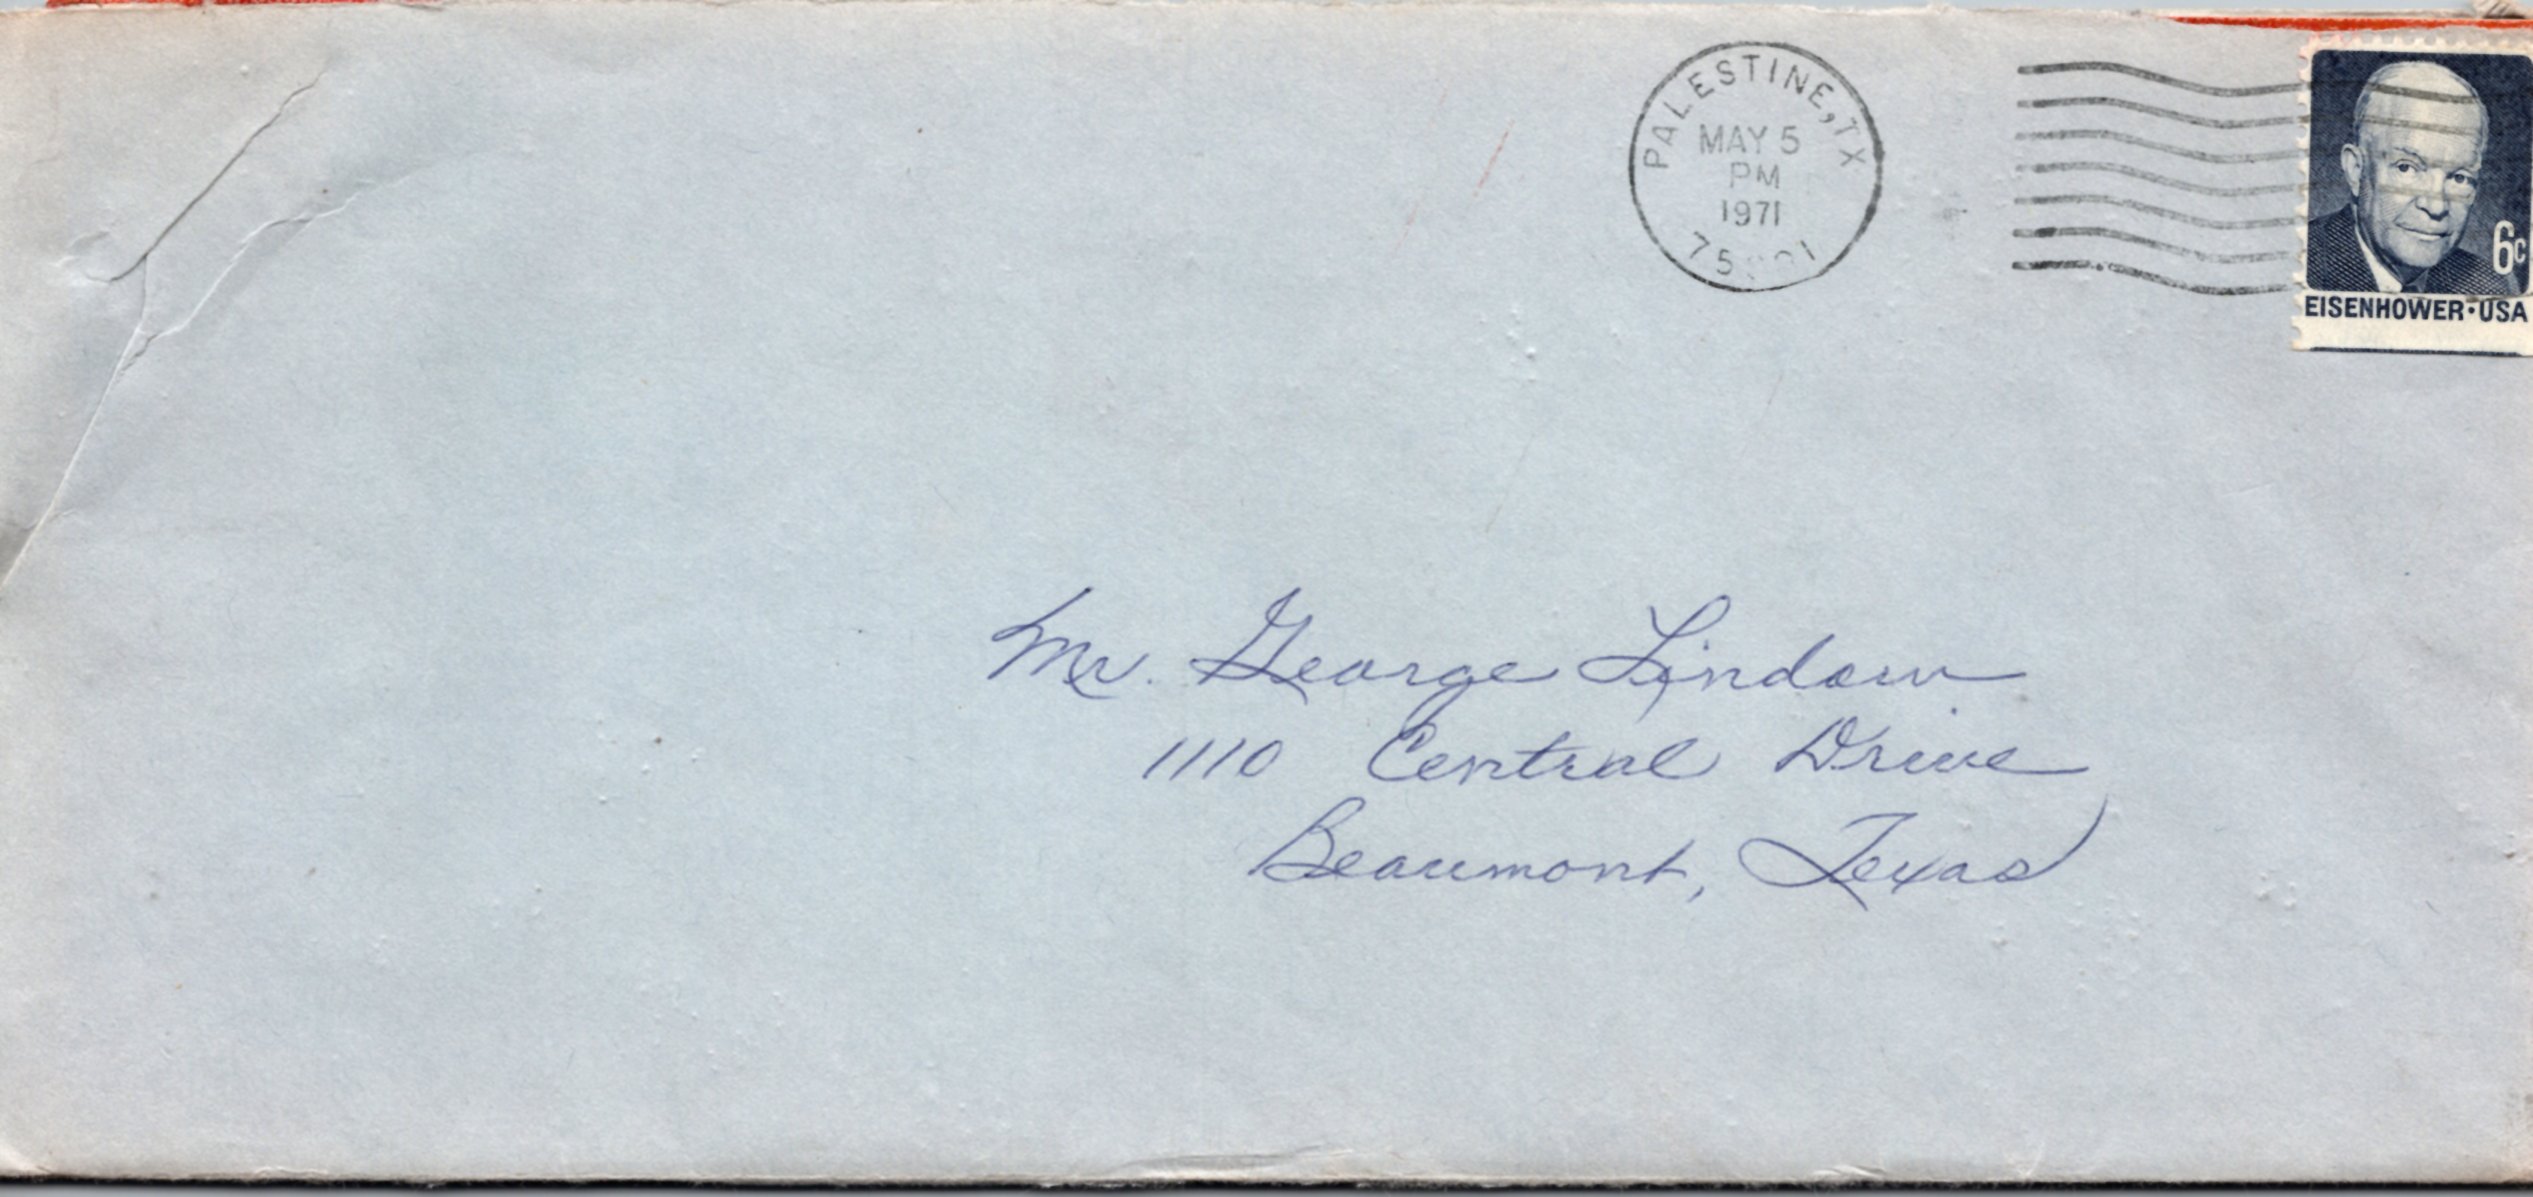 PALESTINE, TX
MAY 5
PM
1971
6c
EISENHOWER·USA
Mr. George Lindow
1110 Central Drive
Beaumont, Texas